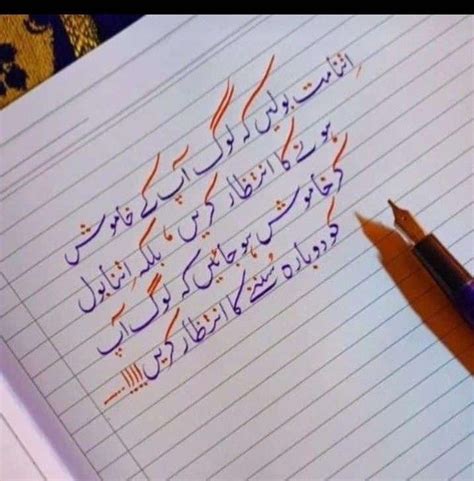 اِتنا مت بولیں کہ لوگ آپ کے خاموش
ہونے کا انتظار کریں، بلکہ اِتنا بول
کر خاموش ہو جائیں کہ لوگ آپ
کو دوبارہ سُننے کا انتظار کریں!!!!.....